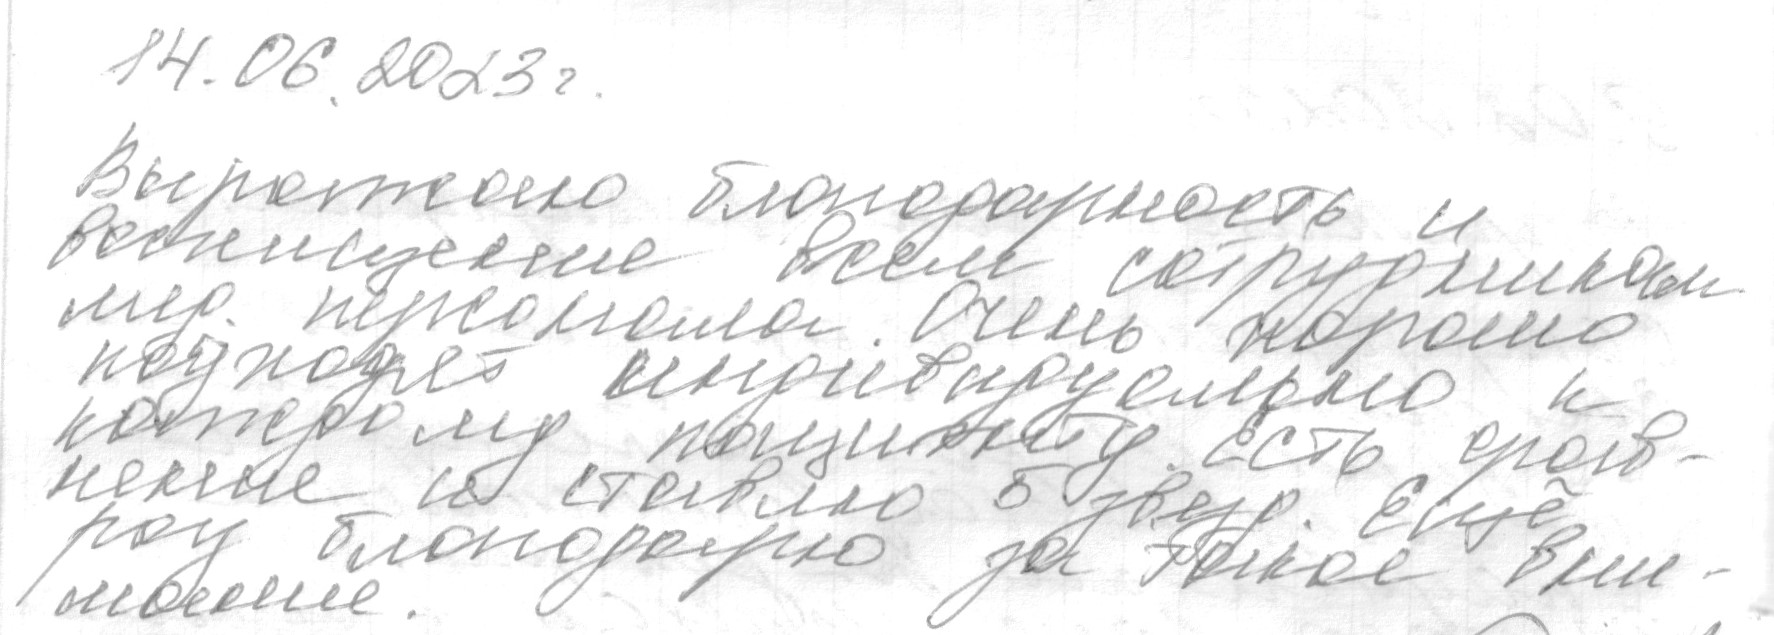 14.06.2023г.
Выражаю благодарность и
восхищение всем сотрудникам
мед. персонала. Очень хорошо
подходят индивидуально к
каждому пациенту. Есть срав-
нение и ставлю 5 звезд. Ещё
раз благодарю за такое вни-
мание.